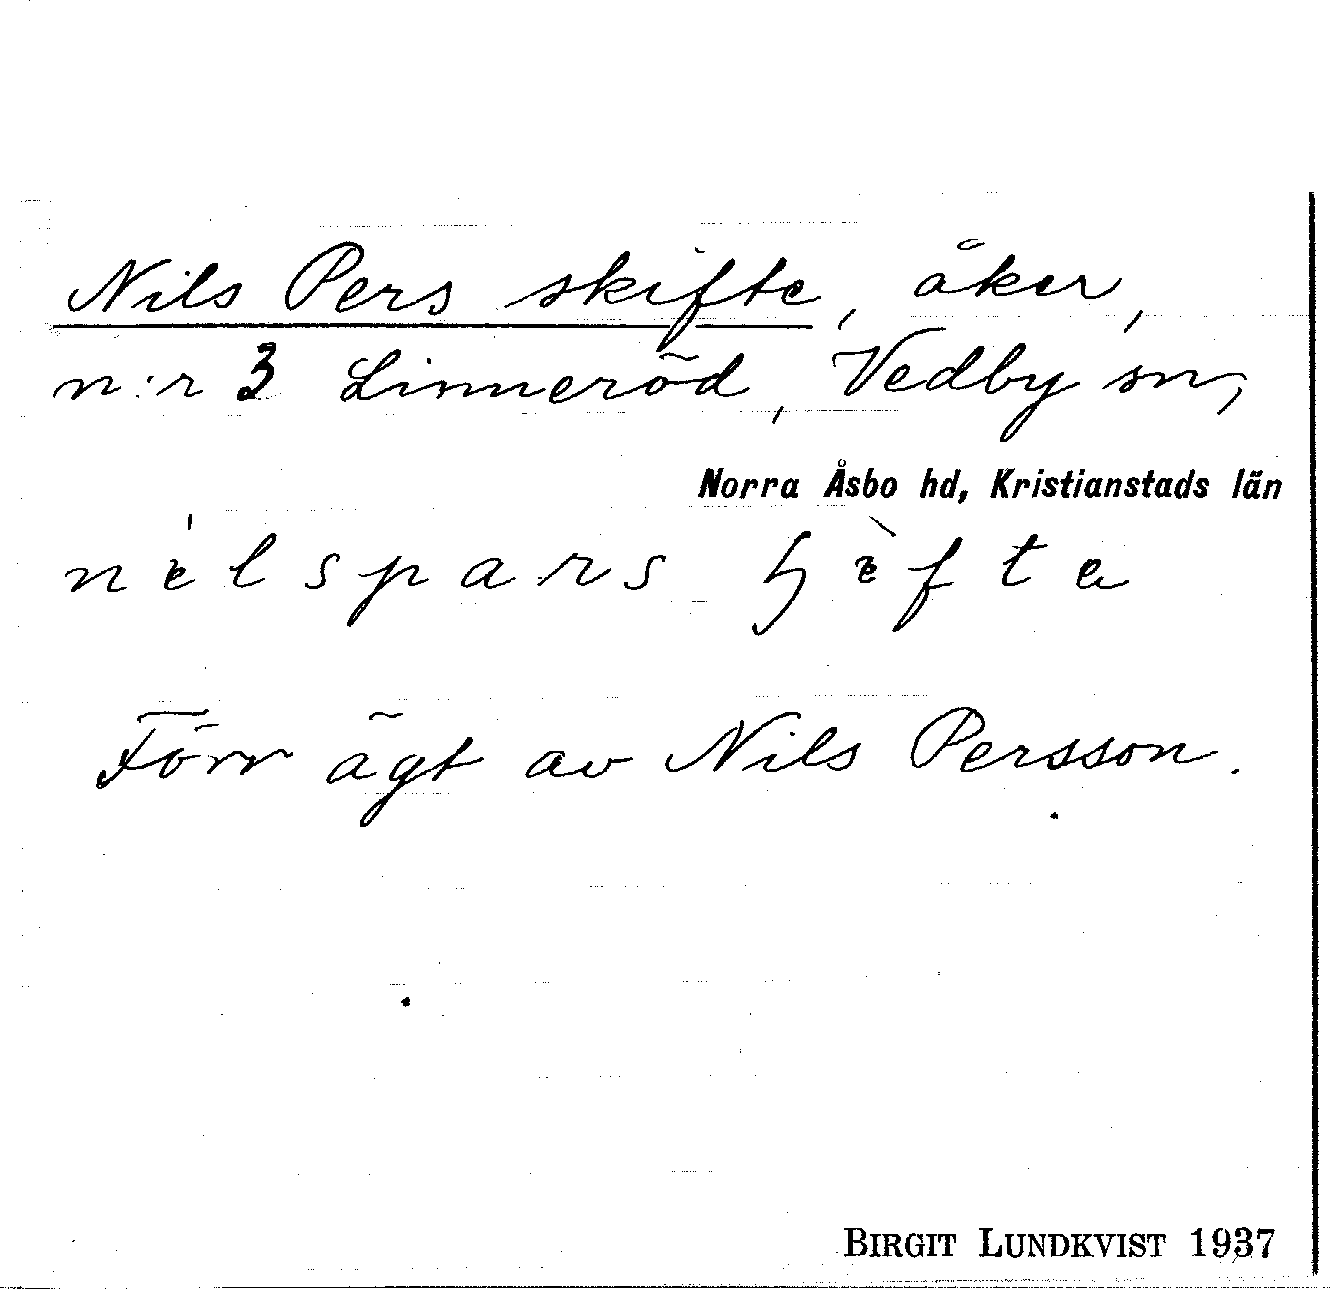 Nils Pers skifte, åker,
n:r 3 Linneröd, Vedby sn,
Norra Åsbo hd, Kristianstads län
Förr ägt av Nils Persson.
BIRGIT LUNDKVIST 1937